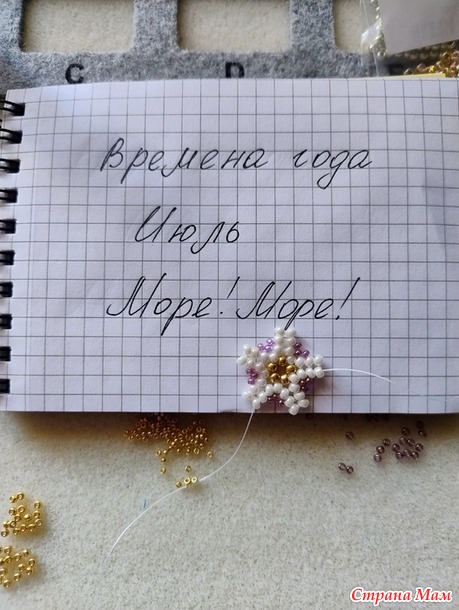 C D
Времена года
Июль
Море! Море!
Страна Мам